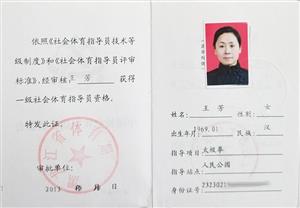 依照《社会体育指导员技术等
级制度》和《社会体育指导员评审
标准》，经审核 王芳 获得
一级社会体育指导员资格。
特发此证。
审批单位：
2013 年 月 日
姓名： 王芳 性别： 女
出生年月 1969.01 民族： 汉
指导项目 太极拳
指导站点： 人民公园
身份证号 2323021